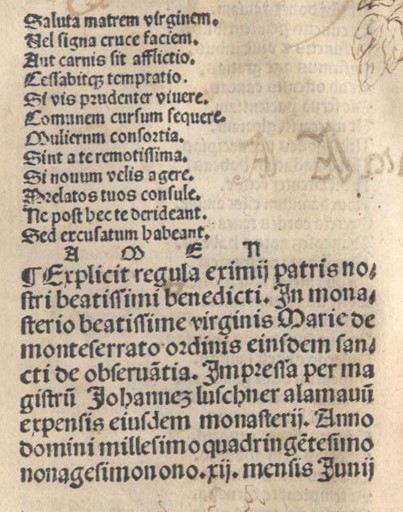 Saluta matrem virginem.
Vel signa cruce faciem.
Aut carnis sit afflictio.
Cessabitqꝫ temptatio.
Si vis prudenter viuere.
Comunem cursum sequere.
Muliernm consortia.
Sint a te remotissima.
Si nouum velis agere.
Prelatos tuos consule.
Ne post hec te derideant.
Sed excusatum habeant.
A M E N
¶Explicit regula eximij patris no⸗
stri beatissimi benedicti. In mona⸗
sterio beatissime virginis Marie de
monteserrato ordinis eiusdem san⸗
cti de obseruãtia. Impressa per ma
gistrũ Johannez luschner alamauũ
expensis eiusdem monasterij. Anno
domini millesimo quadringẽtesimo
nonagesimonono.xij. mensis Junij